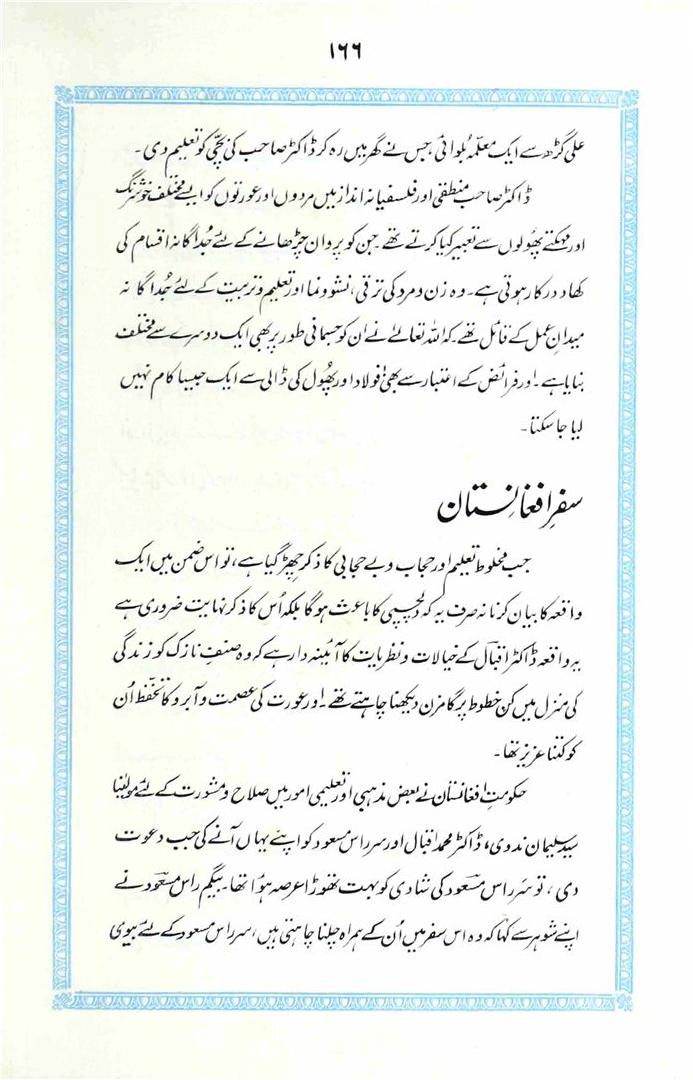 ۱۶۶
علی گڑھ سے ایک معلّمہ بُلوائی جس نے گھر میں رہ کر ڈاکٹر صاحب کی بچّی کو تعلیم دی۔
ڈاکٹر صاحب منطقی اور فلسفیانہ انداز میں مردوں اور عورتوں کو ایسے مختلف خوشرنگ
اور مہکتے پھُولوں سے تعبیر کیا کرتے تھے۔ جن کو پروان چڑھانے کے لئے جُداگانہ اقسام کی
کھاد درکار ہوتی ہے۔ وہ زن و مرد کی ترقی، نشوونما اور تعلیم و تربیت کے لئے جُداگانہ
میدانِ عمل کے قائل تھے۔ کہ اللہ تعالےٰ نے ان کو جسمانی طور پر بھی ایک دوسرے سے مختلف
بنایا ہے۔ اور فرائض کے اعتبار سے بھی فولاد اور پھُول کی ڈالی سے ایک جیسا کام نہیں
لیا جا سکتا۔
سفرِ افغانِستان
جب مخلوط تعلیم اور حجاب و بے حجابی کا ذکر چھِڑ گیا ہے، تو اس ضمن میں ایک
واقعہ کا بیان کرنا نہ صرف یہ کہ دلچسپی کا باعث ہوگا بلکہ اُس کا ذکر نہایت ضروری ہے
یہ واقعہ ڈاکٹر اقبالؔ کے خیالات و نظریات کا آئینہ دار ہے کہ وہ صنفِ نازک کو زندگی
کی منزل میں کن خطوط پر گامزن دیکھنا چاہتے تھے۔ اور عورت کی عصمت و آبرو کا تحفّظ اُن
کو کتنا عزیز تھا۔
حکومتِ افغانستان نے بعض مذہبی اور تعلیمی امور میں صلاح و مشورت کے لئے مولینا
سید سلیمان ندوی، ڈاکٹر محمد اقبال اور سر راس مسعود کو اپنے یہاں آنے کی جب دعوت
دی، تو سر راس مسعود کی شادی کو بہت تھوڑا عرصہ ہُوا تھا۔ بیگم راس مسعود نے
اپنے شوہر سے کہا کہ وہ اس سفر میں اُن کے ہمراہ چلنا چاہتی ہیں، سر راس مسعود کے لئے بیوی